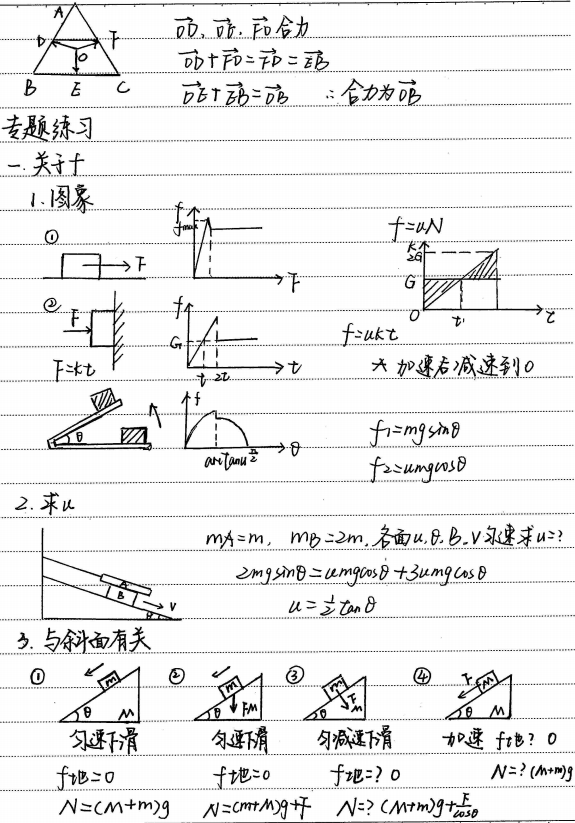 A
D F
O
B E C
→OD、→OE、→FO合力
→OD+→FO=→FD=→EB
→OE+→EB=→OB ∴合力为→OB
专题练习
一.关于f
1.图象
① F
f fmax F
f=uN
K 2G G O t' t
② F
F=kt
f G t 2t t
f=ukt
* 加速后减速到0
θ
f arctanu π/2 θ
f1=mgsinθ
f2=umgcosθ
2.求u
mA=m, mB=2m,各面u,θ.B、V匀速求u=?
2mgsinθ=umgcosθ+3umgcosθ
u=1/2tanθ
A B V θ
3.与斜面有关
① m θ M
② m θ FM
③ m θ F M
④ F m θ M
匀速下滑 匀速下滑 匀减速下滑 加速 f地? 0
f地=0 f地=0 f地=? 0 N=? (M+m)g
N=(M+m)g N=(m+M)g+F N=? (M+m)g+F/cosθ